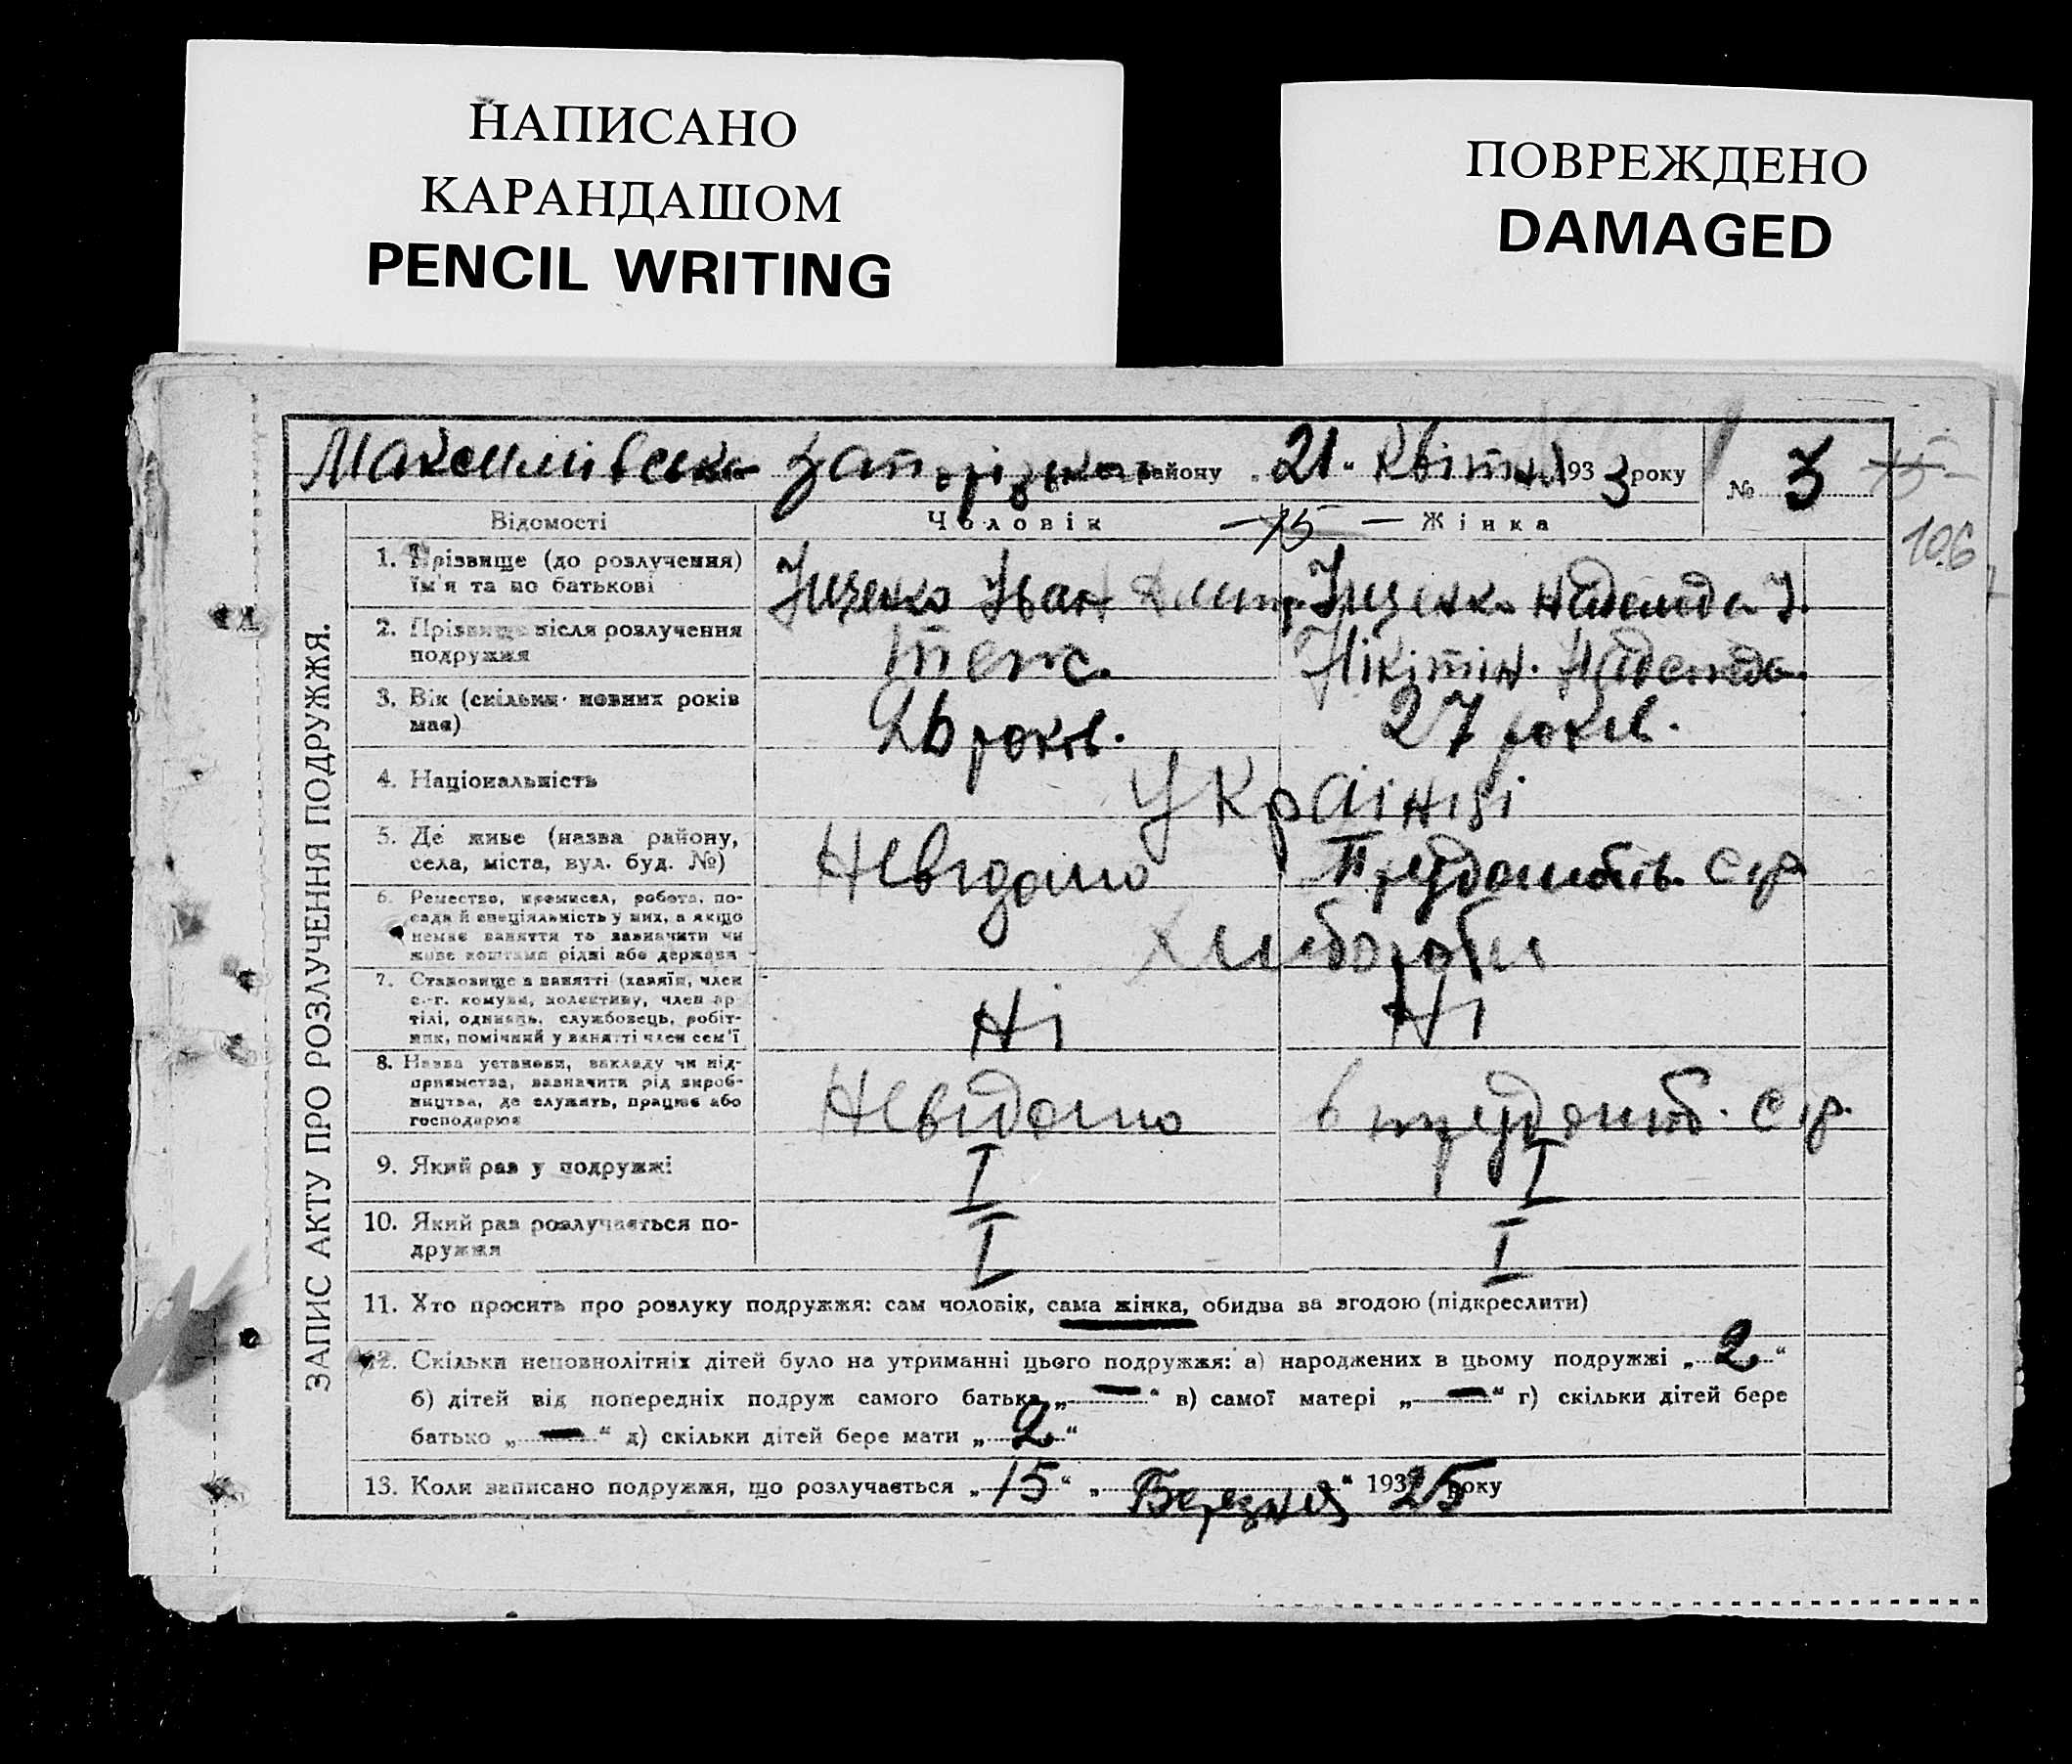 НАПИСАНО
КАРАНДАШОМ
PENCIL WRITING
ПОВРЕЖДЕНО
DAMAGED
Запорізького району „21“ Квітня 1933 року № 3
15
106
ЗАПИС АКТУ ПРО РОЗЛУЧЕННЯ ПОДРУЖЖЯ.
Відомості Чоловік — 15 — Жінка
1. Прізвище (до розлучення) їм'я та по батькові
Іщенко Іван Дмитр. Іщенко Надежда І.
2. Прізвище після розлучення подружжя
теж Нікітін. Надежда.
3. Вік (скільки повних років має)
26 років. 27 років.
4. Національність
Українці
5. Де живе (назва району, села, міста, вул. буд. №)
Невідомо с/р
6. Ремество, промисел, робота, посада й спеціяльність у них, а якщо немає заняття то зазначити чи живе коштами рідні або держави
Хлібороби
7. Становище в занятті (хазяїн, член с.-г. комуни, колективу, член артілі, одинець, службовець, робітник, помічний у занятті член сем'ї
Ні Ні
8. Назва установи, закладу чи підприємства, зазначити рід виробництва, де служить, працює або господарює
Невідомо в с/р.
9. Який раз у подружжі
I I
10. Який раз розлучається подружжя
I I
11. Хто просить про розлуку подружжя: сам чоловік, сама жінка, обидва за згодою (підкреслити)
12. Скільки неповнолітніх дітей було на утриманні цього подружжя: а) народжених в цьому подружжі „2“
б) дітей від попередніх подруж самого батька „—“ в) самої матері „—“ г) скільки дітей бере
батько „—“ д) скільки дітей бере мати „2“
13. Коли записано подружжя, що розлучається „15“ „Березня“ 1925 року